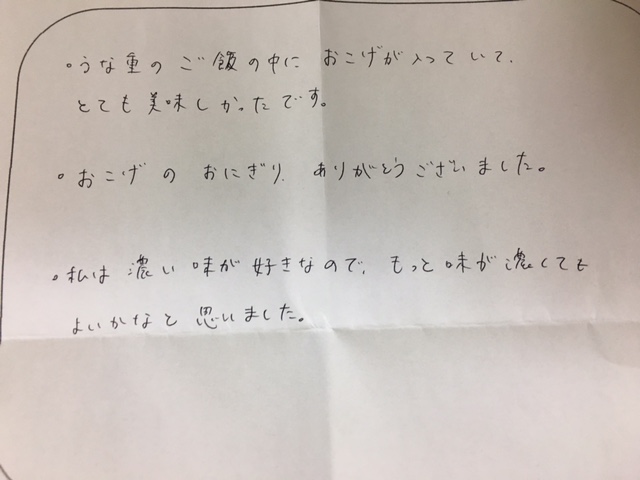 ・うな重のご飯の中に おこげが入っていて、
とても美味しかったです。
・おこげのおにぎり、ありがとうございました。
・私は濃い味が好きなので、もっと味が濃くても
よいかなと思いました。